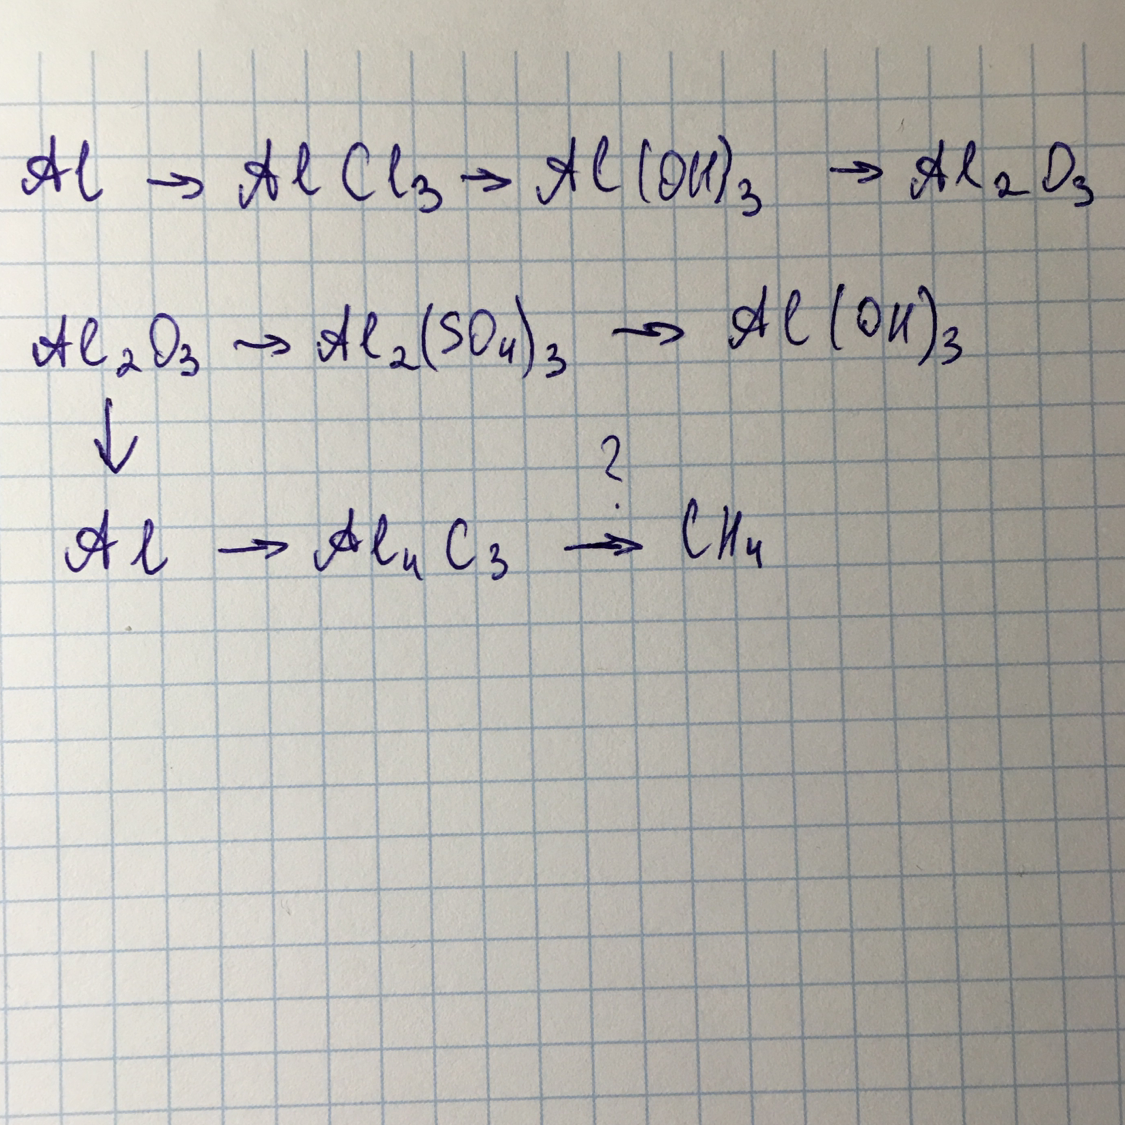 Al → AlCl₃ → Al(OH)₃ → Al₂O₃
Al₂O₃ → Al₂(SO₄)₃ → Al(OH)₃
↓
?
Al → Al₄C₃ → CH₄